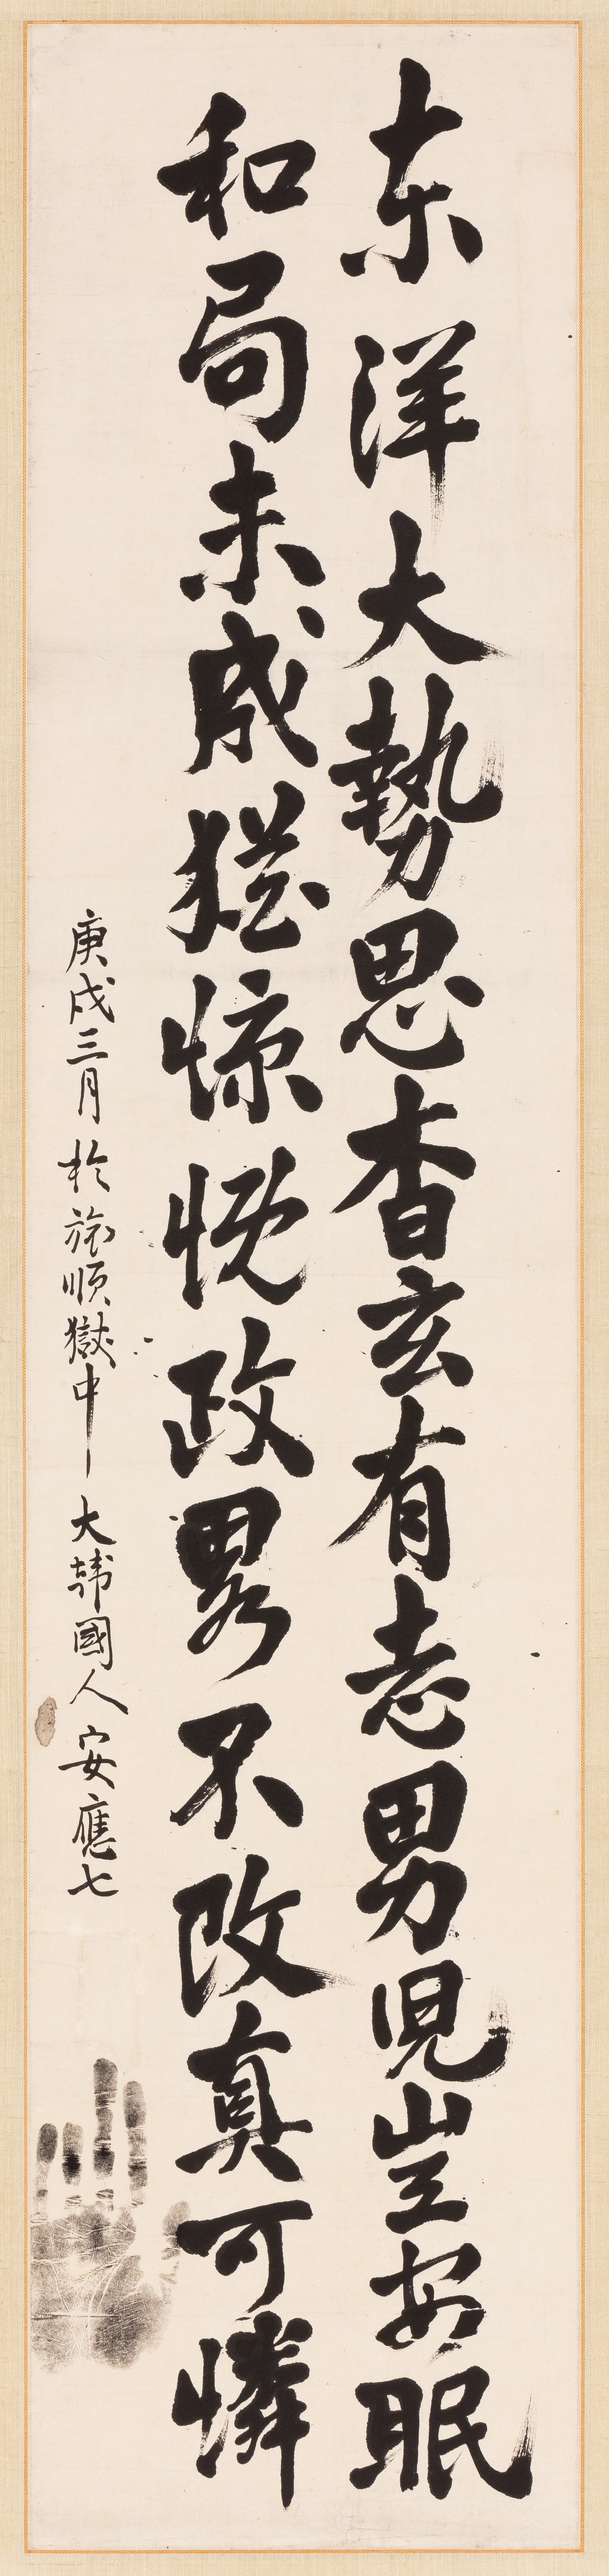 东洋大勢思杳玄有志男児豈安眠
和局未成猶慷慨政畧不改真可憐
庚戌三月於旅順獄中大韓國人安應七